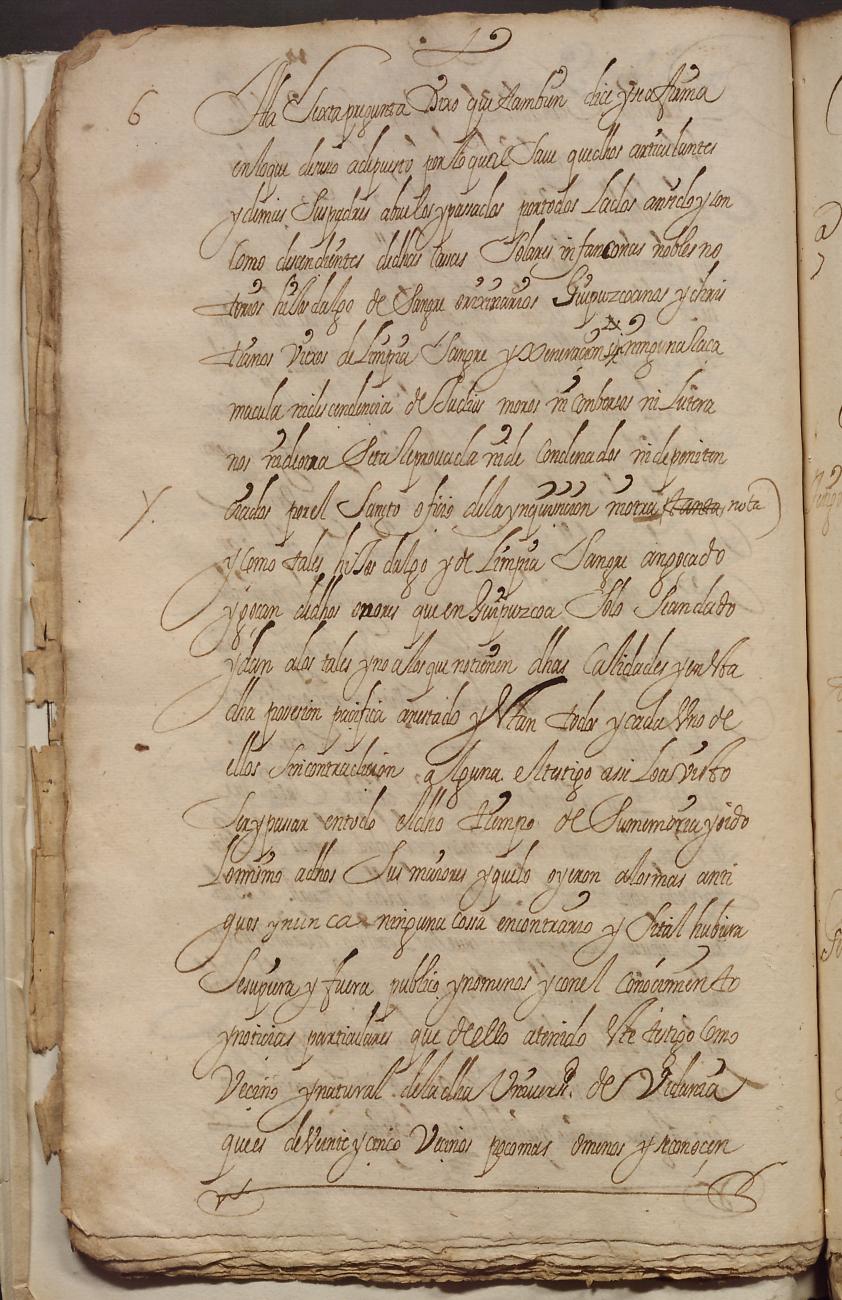 6 A la Sexta pregunta Dixo que tambien dice y se afirma
en lo que de suso a depuesto por lo qual Save que dhos articulantes
y demas Sus padres abuelos y pasados por todos Lados an sido y son
Como descendientes de dhas casas Solares infançonas nobles no
torios hijos dalgo de Sangre orixinarios Guipuzcoanos y chris
tianos Viexos de Limpia Sangre y xeneracion sin ninguna Raça
macula ni descendencia de Judios moros ni Conbersos ni Lutera
nos ni de otra Seta Reprouada ni de Condenados ni de peniten
ciados por el Santo oficio de la ynquisicion ni otra nota
y Como tales hijos dalgo y de Limpia Sangre an goçado
y goçan de dhos onores que en Guipuzcoa Solo Se an dado
y dan a los tales y no a los que no tienen dhas Calidades y en esta
dha posesion pacifica an estado y estan todos y cada Uno de
ellos Sin contradicion alguna el testigo asi Lo a visto
Ser y pasar en todo el dho tiempo de Su memoria y oido
Lo mismo a dhos Sus maiores y que lo oyeron a los mas anti
guos y nunca ninguna cossa en contrario y Si tal hubiera
Se supiera y fuera publico y no menos y con el Conocimiento
y noticias particulares que de ello a tenido este testigo Como
Vecino y natural de la dha Universd. de Vidania
que es de Veinte y cinco Vecinos poco mas o menos y se conocen